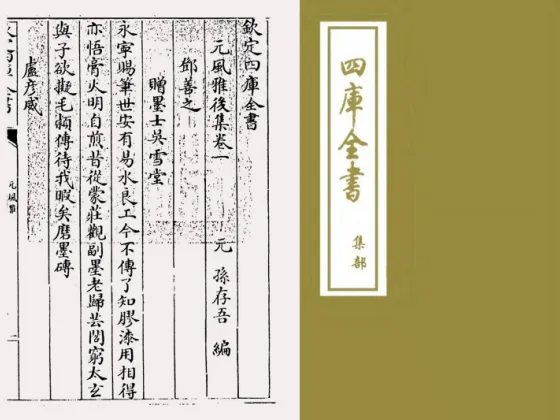 欽定四庫全書
元風雅後集卷一
元 孫存吾 編
鄧善之
贈墨士吳雪堂
永寧賜筆世安有易水良工今不傳了知膠漆用相得
亦悟膏火明自煎昔從蒙莊觀副墨老歸芸閣窮太玄
與子欲擬毛穎傳待我暇矣磨墨磚
盧彥威
元風雅
四庫全書
集部